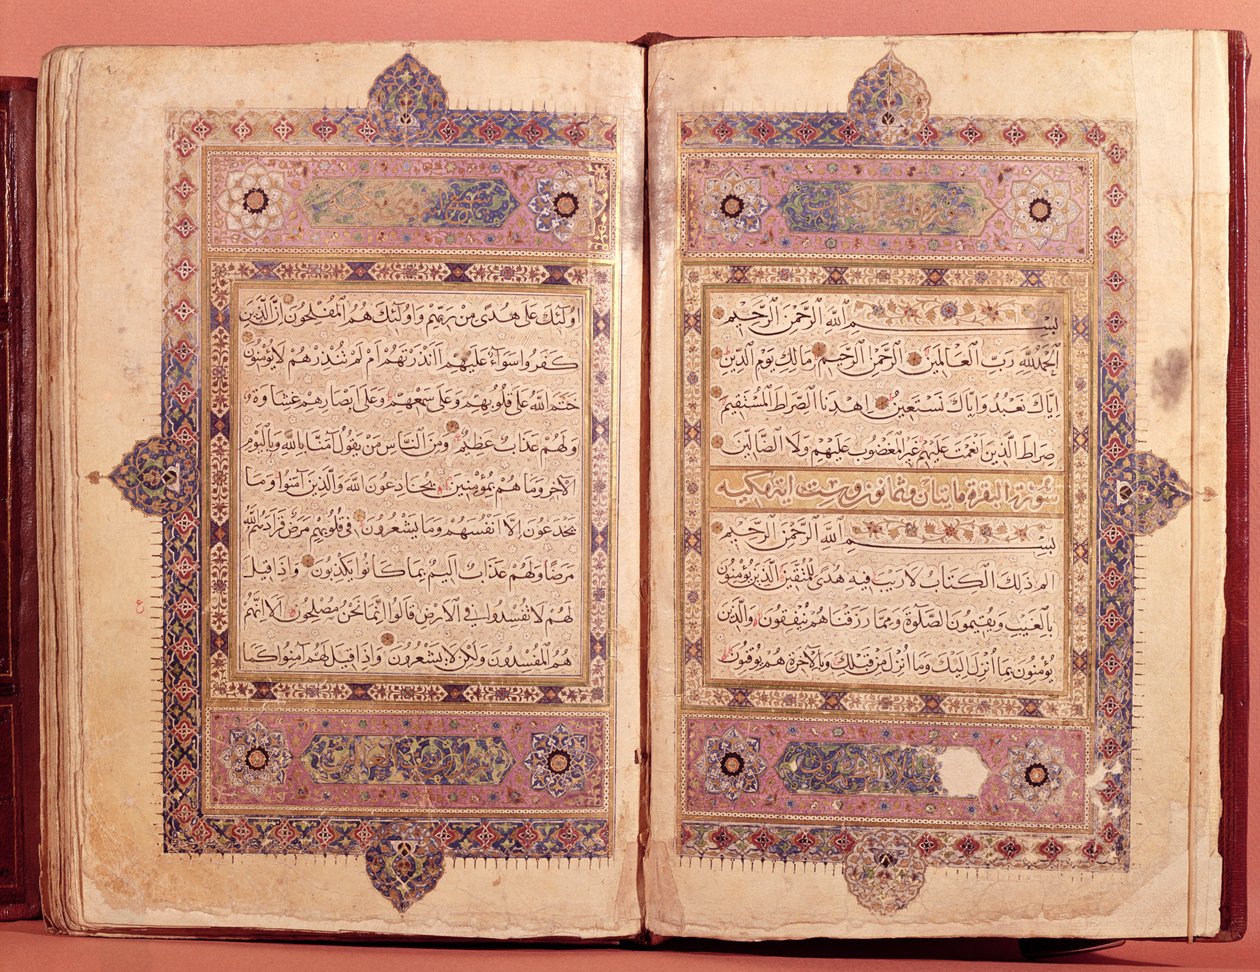 بسم الله الرحمن الرحيم
الحمد لله رب العالمين الرحمن الرحيم مالك يوم الدين
اياك نعبد واياك نستعين اهدنا الصراط المستقيم
صراط الذين انعمت عليهم غير المغضوب عليهم ولا الضالين
سورة البقرة مائتان وثمانون وست اية مكية
بسم الله الرحمن الرحيم
الم ذلك الكتاب لا ريب فيه هدى للمتقين الذين يؤمنون
بالغيب ويقيمون الصلوة ومما رزقناهم ينفقون والذين
يؤمنون بما انزل اليك وما انزل من قبلك وبالاخرة هم يوقنون
اولئك على هدى من ربهم واولئك هم المفلحون ان الذين
كفروا سواء عليهم أانذرتهم ام لم تنذرهم لا يؤمنون
ختم الله على قلوبهم وعلى سمعهم وعلى ابصارهم غشاوة
ولهم عذاب عظيم ومن الناس من يقول امنا بالله وباليوم
الاخر وما هم بمؤمنين يخادعون الله والذين امنوا وما
يخدعون الا انفسهم وما يشعرون في قلوبهم مرض فزادهم الله
مرضا ولهم عذاب اليم بما كانوا يكذبون واذا قيل
لهم لا تفسدوا في الارض قالوا انما نحن مصلحون الا انهم
هم المفسدون ولكن لا يشعرون واذا قيل لهم امنوا كما